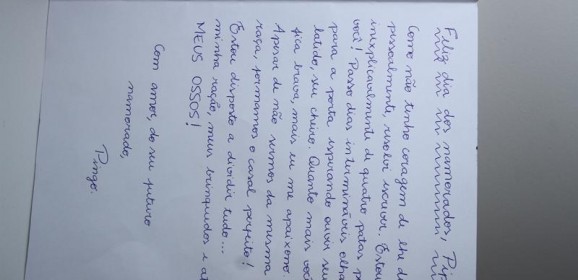 Feliz dia dos namorados,
Como não tenho coragem de lhe
pessoalmente, resolvi escrever. Estou
inexplicavelmente de quatro patas
você! Passo dias intermináveis
para a porta esperando ouvir seu
latido, seu cheiro. Quanto mais você
fica brava, mais eu me apaixono
Apesar de não sermos da mesma
raça, formamos o casal perfeito!
Estou disposto a dividir tudo...
minha ração, meus brinquedos e
MEUS OSSOS!
Com amor, do seu futuro
namorado,
Pingo.